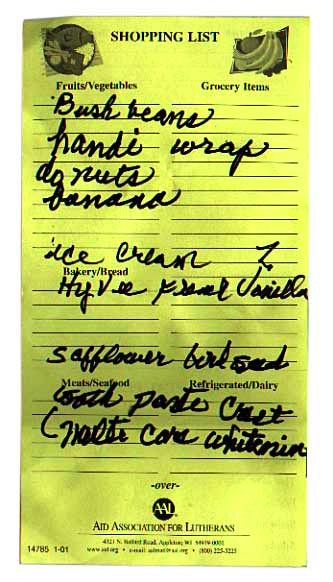 SHOPPING LIST
Fruits/Vegetables Grocery Items
Bush beans
handi wrap
donuts
banana
ice cream
Bakery/Bread
HyVee Vanilla
safflower bird seed
Meats/Seafood Refrigerated/Dairy
tooth paste Crest
(Multi Care whitenin
-over-
AAL
AID ASSOCIATION FOR LUTHERANS
4321 N. Ballard Road, Appleton, WI 54919-0001
www.aal.org • e-mail: aalmail@aal.org • (800) 225-5225
14785 1-01